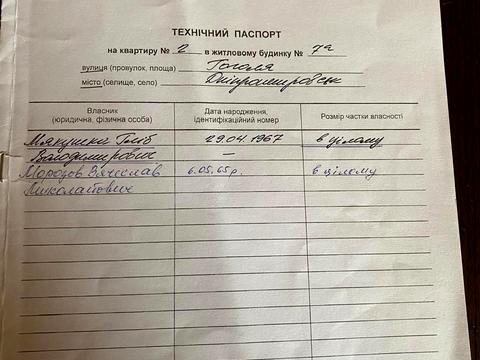 ТЕХНІЧНИЙ ПАСПОРТ
на квартиру № 2 в житловому будинку № 7а
вулиця (провулок, площа) Гоголя
місто (селище, село) Дніпропетровськ
Власник (юридична, фізична особа) Дата народження, ідентифікаційний номер Розмір частки власності
Мякушко Гліб 29.04.1967 в цілому
Володимирович —
Морозов Вячеслав 6.05.65р. в цілому
Миколайович